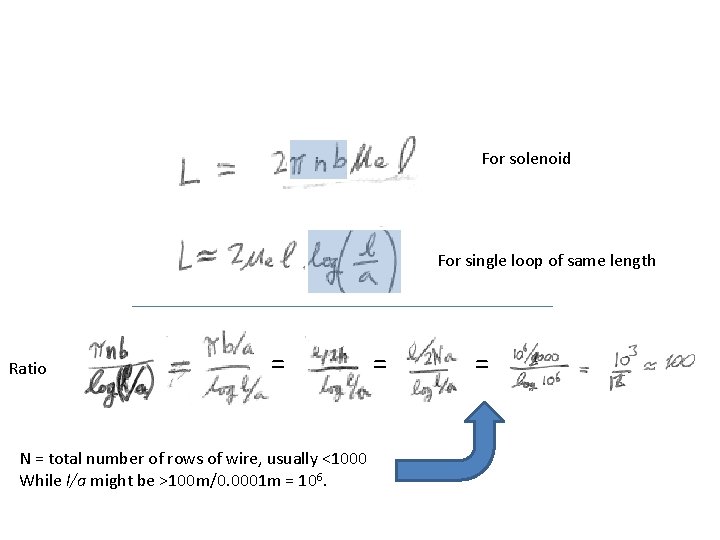 L = 2πnbμₑl
For solenoid
L ≃ 2μₑl.log(l/a)
For single loop of same length
Ratio πnb/log(l/a) = πb/a/log l/a = /log l/a = l/2Na/log l/a = 10⁶/1000/log 10⁶ = 10³/ ≃ 100
N = total number of rows of wire, usually <1000
While l/a might be >100m/0.0001m = 10⁶.